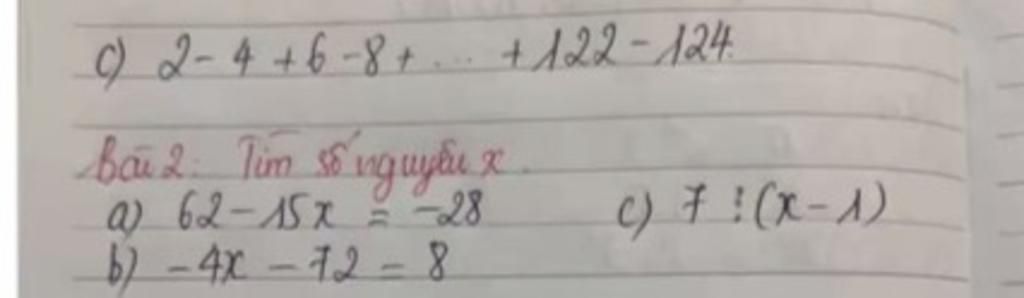 c) 2 - 4 + 6 - 8 + ... + 122 - 124.
Bài 2: Tìm số nguyên x.
a) 62 - 15x = -28 c) 7 ⋮ (x - 1)
b) -4x - 72 = 8